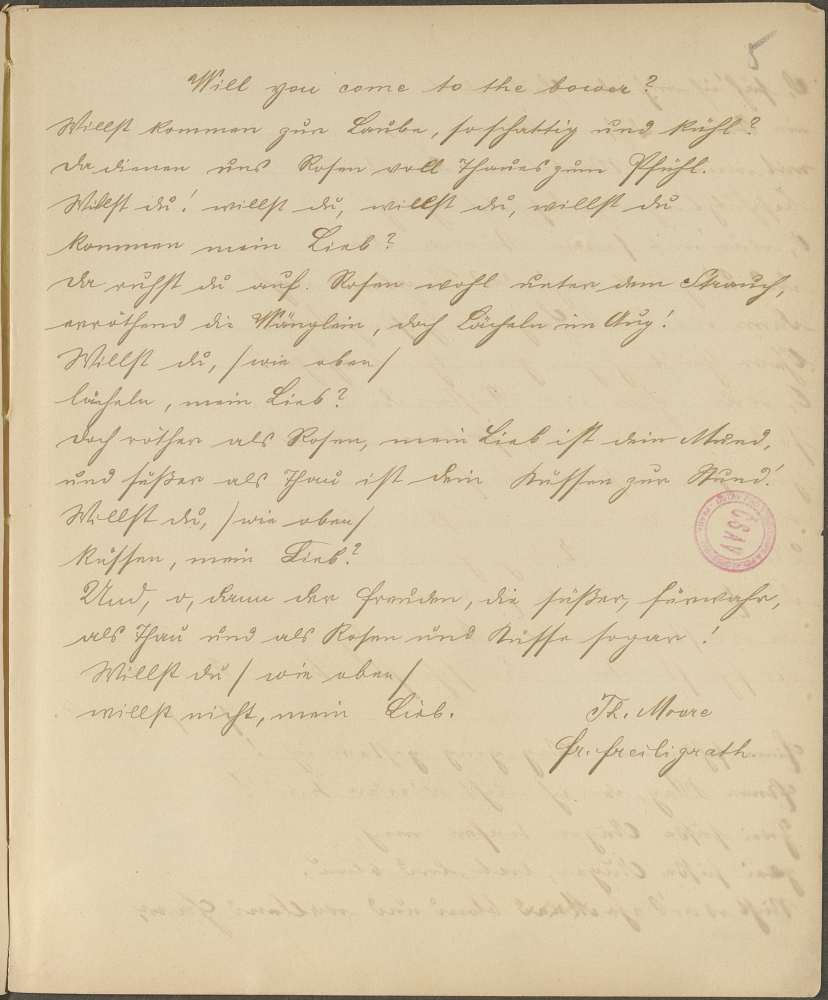 5
Will you come to the bower?
Willst kommen zur Laube, so schattig und kühl?
Da dienen uns Rosen voll Thaues zum Pfühl.
Willst du! willst du, willst du, willst du
kommen mein Lieb?
Da ruhst du auf Rosen wohl unter dem Strauch,
erröthend die Wänglein, doch Lächeln im Aug!
Willst du, /wie oben/
lächeln, mein Lieb?
Doch röther als Rosen, mein Lieb ist dein Mund,
und süßer als Thau ist dein Küssen zur Stund!
Willst du, /wie oben/
küssen, mein Lieb?
Und, o, dann der Freuden, die süßer, fürwahr,
als Thau und als Rosen und Küsse sogar!
Willst du /wie oben/
willst nicht, mein Lieb.
Th. Moore
Fr. Freiligrath.
ČSAV